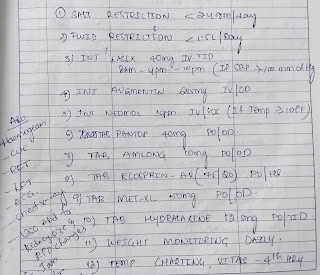 ① SALT RESTRICTION < 2.4gm/day
2) FLUID RESTRICTION < 1.5L/Day
3) INJ LASEX 40mg IV TID
8am - 4pm - 10pm (If SBP > 110 mm of Hg)
4) INJ AUGMENTIN IV OD
5) INJ NEOMOL 1gm IV (If Temp > 101°F)
6) TAB PANTOP 40mg PO/OD
7) TAB AMLONG 10mg PO/OD
8) TAB ECOSPRIN-AV (75/20) PO/HS
9) TAB MET-XL 50mg PO/OD
10) TAB HYDRALAZINE 12.5mg PO/TID
11) WEIGHT MONITORING DAILY
12) TEMP CHARTING VITALS - 4th Hrly
Adv
- Hemogram
- CUE
- RFT
- LFT
- ECG
- Chest X-ray
- USG Abd